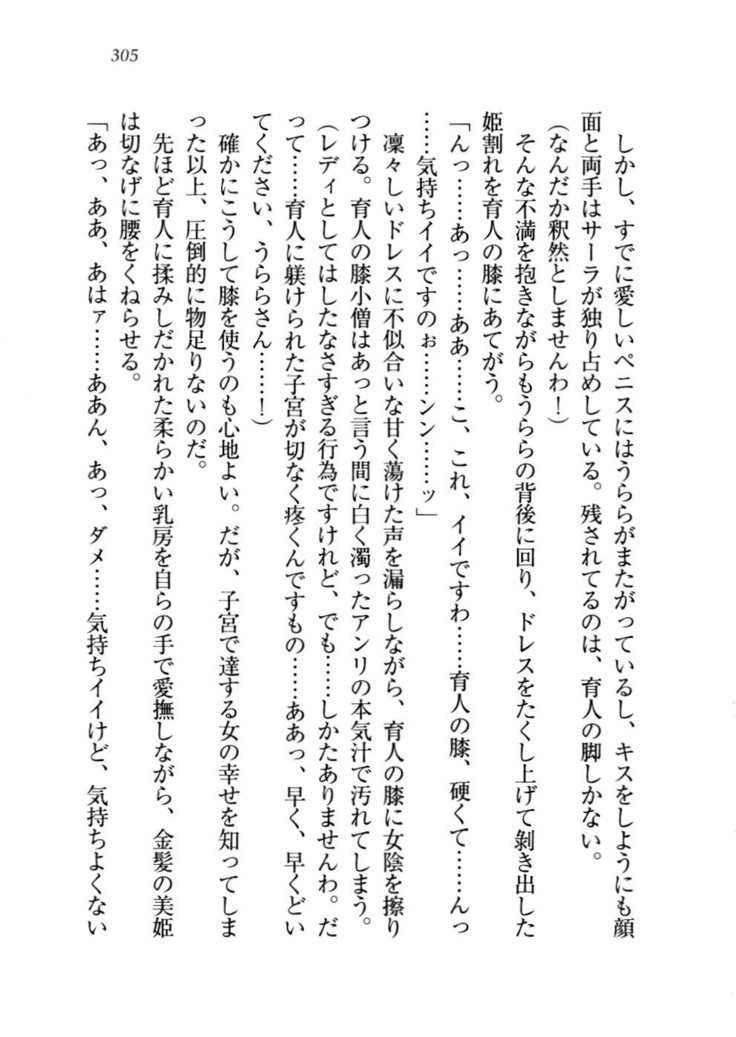 305
しかし、すでに愛しいペニスにはうららがまたがっているし、キスをしようにも顔
面と両手はサーラが独り占めしている。残されてるのは、育人の脚しかない。
(なんだか釈然としませんわ!)
そんな不満を抱きながらもうららの背後に回り、ドレスをたくし上げて剝き出した
姫割れを育人の膝にあてがう。
「んっ……あっ……ああ……こ、これ、イイですわ……育人の膝、硬くて……んっ
……気持ちイイですのぉ……シン……ッ」
凜々しいドレスに不似合いな甘く蕩けた声を漏らしながら、育人の膝に女陰を擦り
つける。育人の膝小僧はあっと言う間に白く濁ったアンリの本気汁で汚れてしまう。
(レディとしてはしたなさすぎる行為ですけれど、でも……しかたありませんわ。だ
って……育人に躾けられた子宮が切なく疼くんですもの……ああっ、早く、早くどい
てください、うららさん……!)
確かにこうして膝を使うのも心地よい。だが、子宮で達する女の幸せを知ってしま
った以上、圧倒的に物足りないのだ。
先ほど育人に揉みしだかれた柔らかい乳房を自らの手で愛撫しながら、金髪の美姫
は切なげに腰をくねらせる。
「あっ、ああ、あはァ……ああん、あっ、ダメ……気持ちイイけど、気持ちよくない